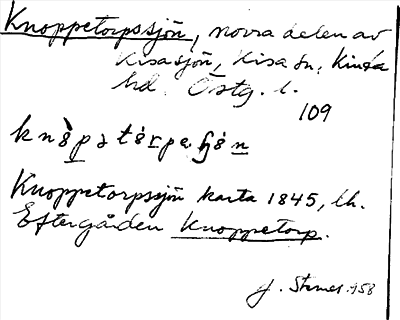 Knoppetorpssjön, norra delen av
Kisasjön, Kisa sn, Kinda
hd. Östg. l.
109
Knoppetorpssjön karta 1845, th.
Eftergården Knoppetorp.